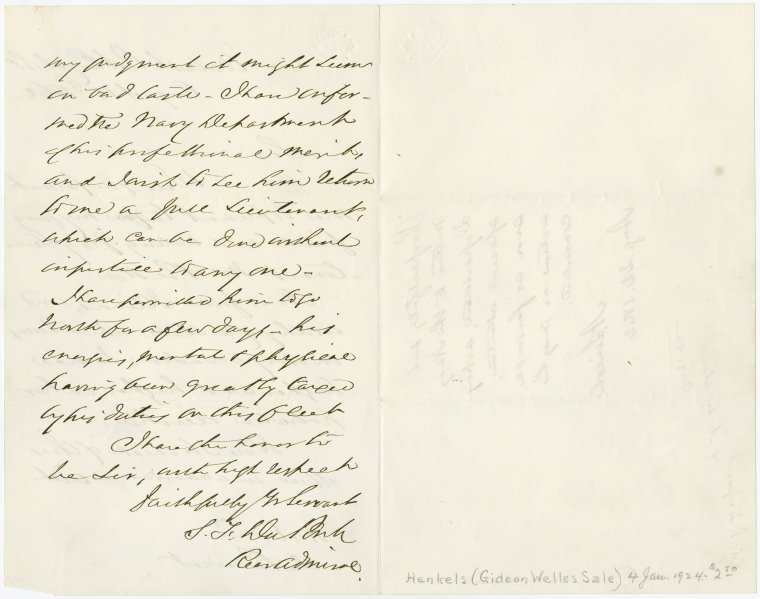 my judgment it might seem
in bad taste - I have infor-
med the Navy Department
of his professional merits,
and I wish to see him return
to me a full Lieutenant,
which can be done without
injustice to any one -
I have permitted him to go
North for a few days - his
energies, mental & physical
having been greatly taxed
by his duties in this fleet
I have the honor to
be Sir, with high respect
faithfully Yr Servant
S. F. Du Pont
Rear Admiral.
Henkels (Gideon Welles Sale) 4 Jan. 1924. $2.50